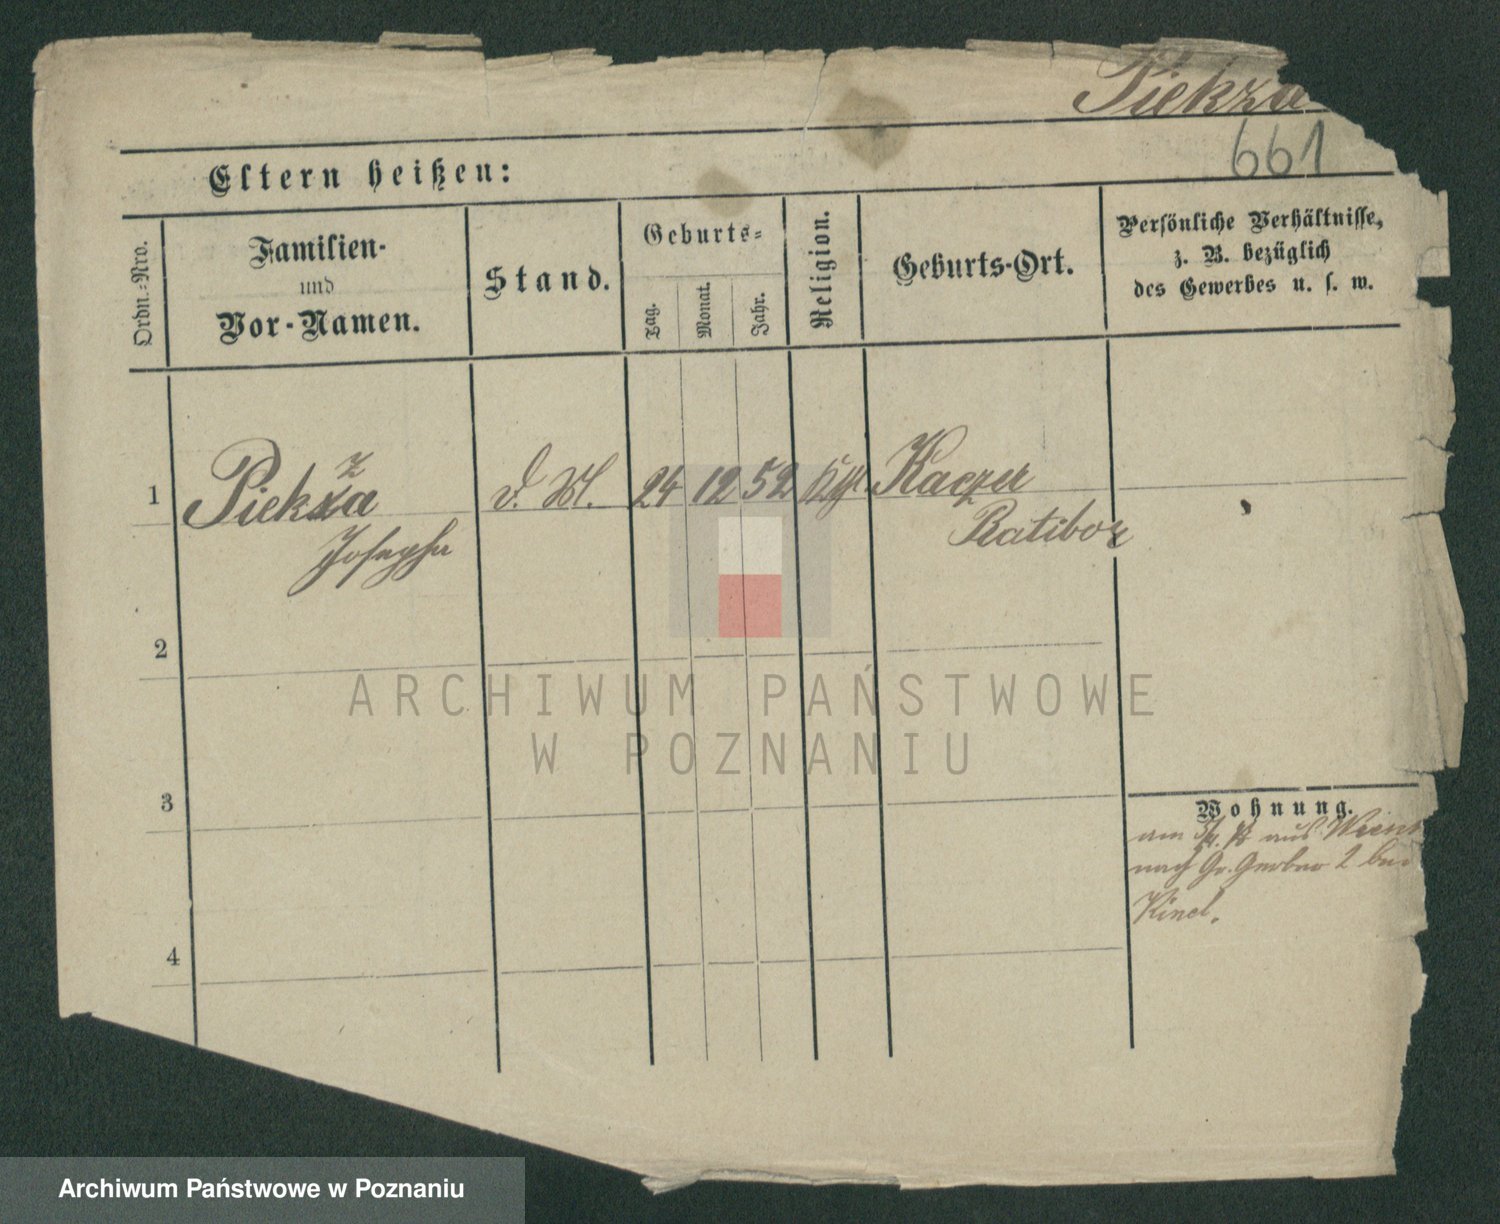 Piekża
661
Eltern heißen:
Ordn.-Nro.
Familien-
und
Vor-Namen.
Stand.
Geburts-
Tag.
Monat.
Jahr.
Religion.
Geburts-Ort.
Persönliche Verhältnisse,
z. B. bezüglich
des Gewerbes u. s. w.
1
z
Piekża
Josepha
24
12
52
Kaczer
Ratibor
2
3
4
Wohnung.
am aus
nach Gr. Gerber 2 bei
Kinel.
ARCHIWUM PAŃSTWOWE
W POZNANIU
Archiwum Państwowe w Poznaniu